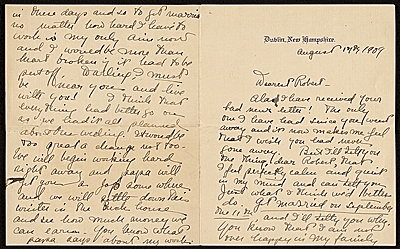 Dublin, New Hampshire.
August 17th 1909
Dearest Robert.
Alas I have received your
sad news letter. The only
one I have had since you went
away and it now makes me feel
that I wish you had never
gone away. But I'll tell you
one thing, dear Robert, that
I feel perfectly calm and quiet
in my mind and can tell you
just what I think was better
do. Get married on September
the 11th, and I'll tell you why
You know that I am not
over happy in my family
in these days and is to get married
no matter how hard I have to
work is my only aim now
and I would be more than
heart broken if it had to be
put off. Darling I must
be near you and live
with you! I think that
everything had better go on
as we had it all planned
about the wedding. It would be
too great a change not to.
We will begin working hard
right away and papa will
get you a job some where
and we will settle down
winter in the
and see how much money we
can earn. You know what
papa says about my work